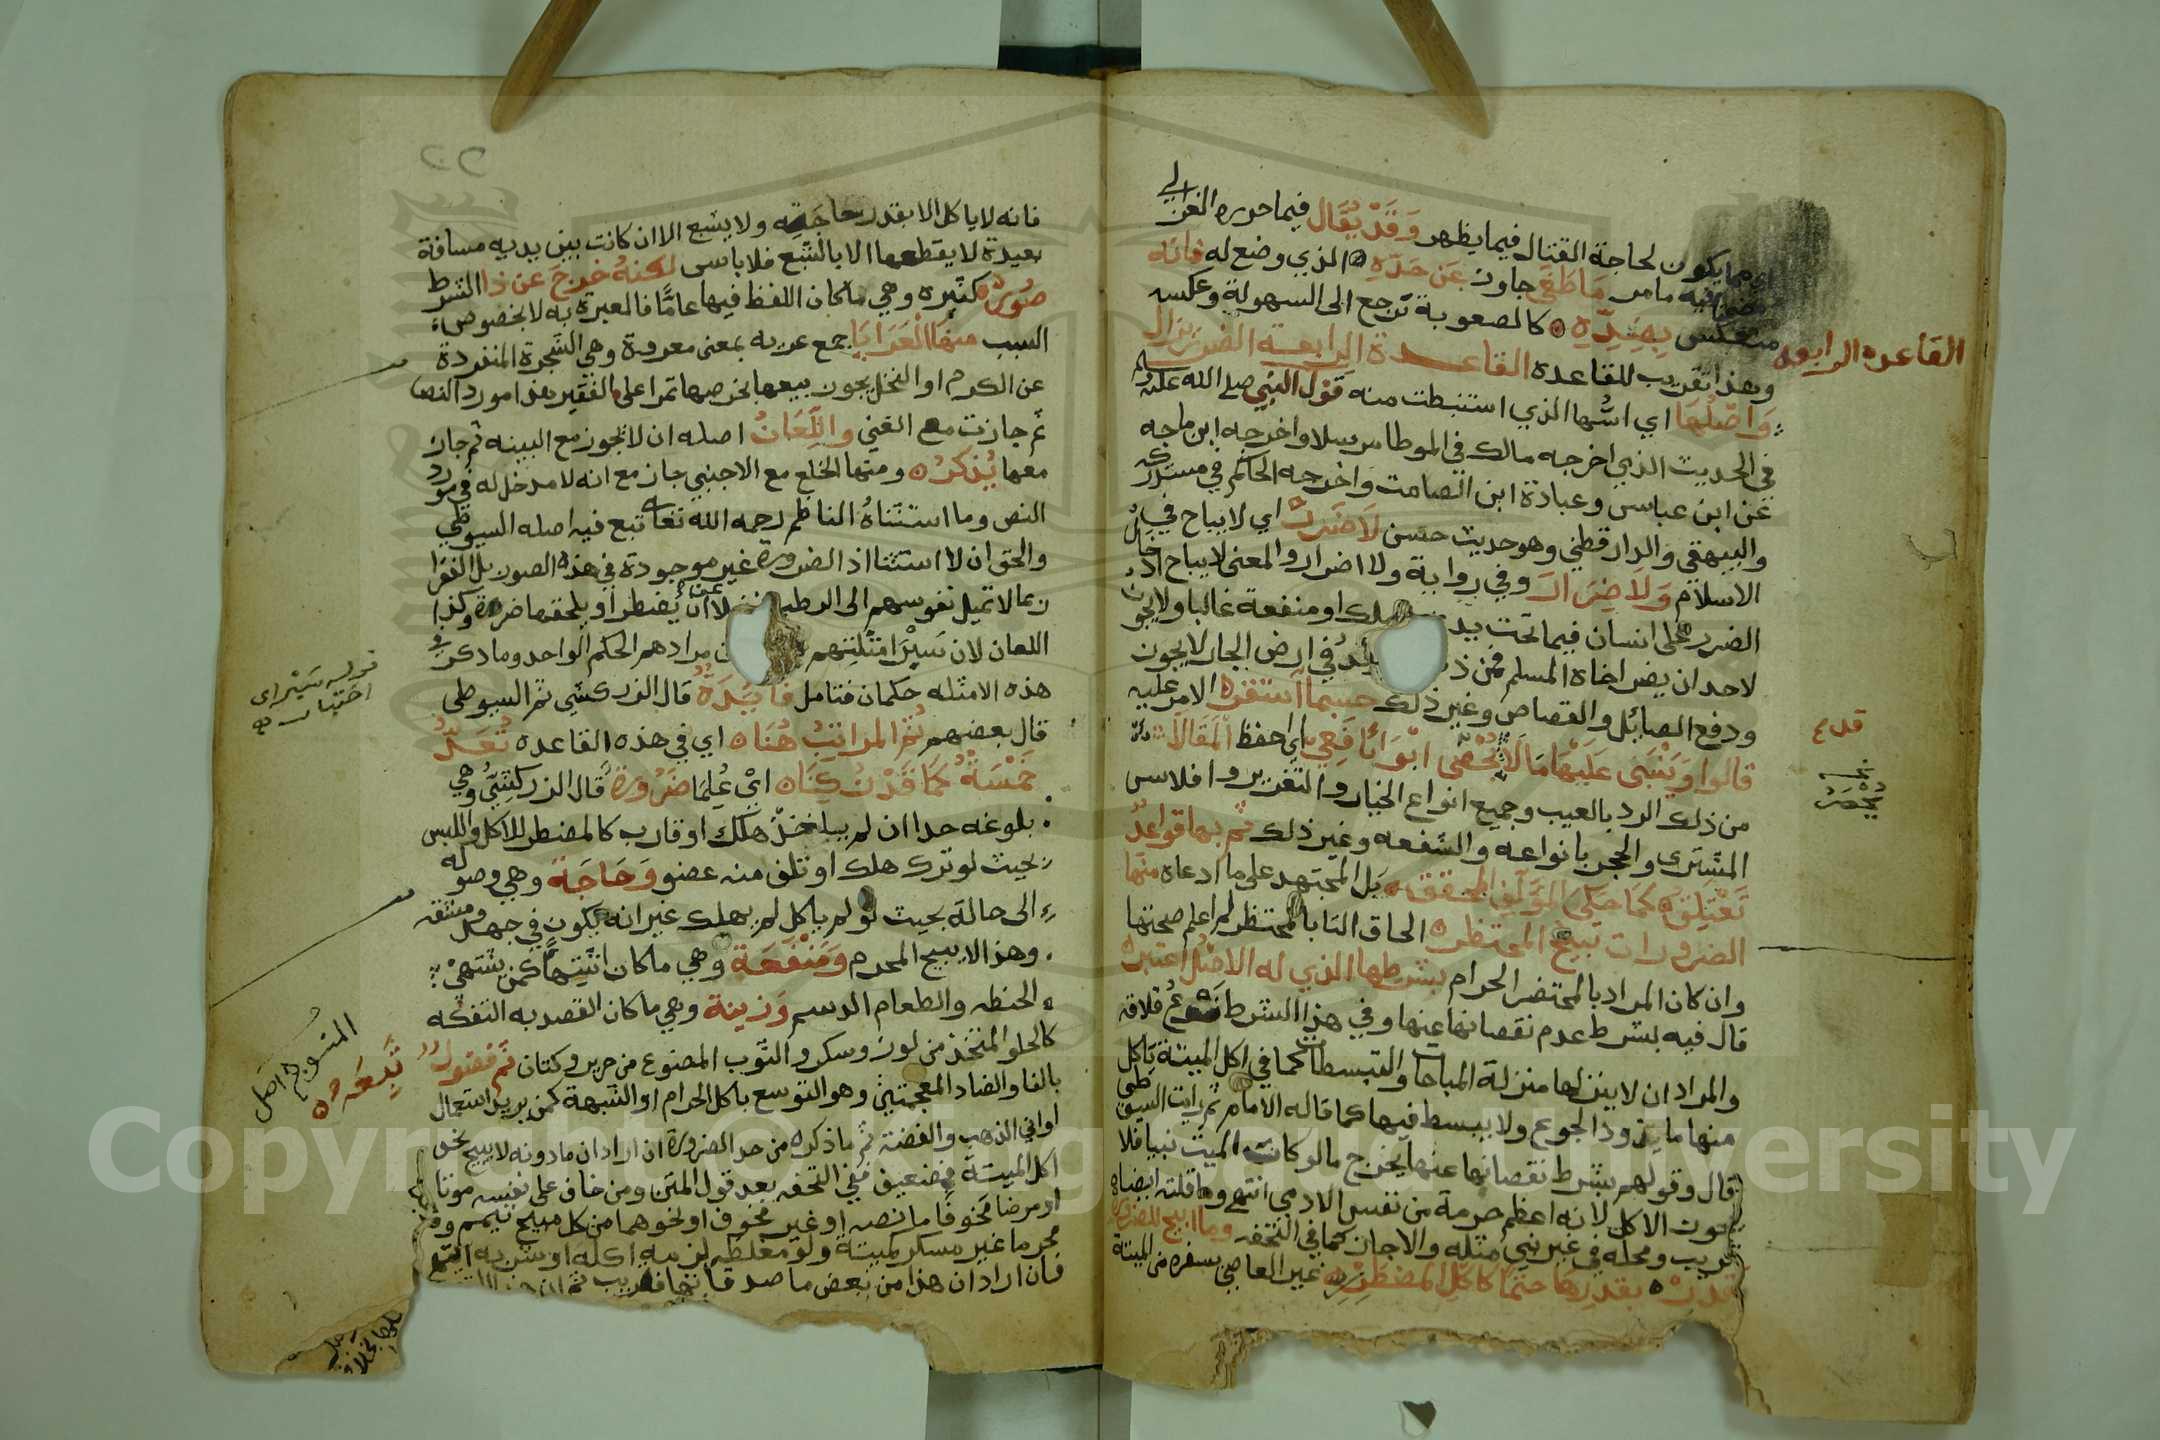 مما يكون لحاجة القتال فيما يظهر وَقَدْ يُقَال فيما حرره الغزالي
فيه ما مر مَا طَغَى جاوز عَن حَدِّهِ الذي وضع له فانه
منعكس بِضِدِّهِ كالصعوبة ترجع الى السهولة وعكسه
وهذا تقريب للقاعدة القاعدة الرابعة الضرر يزال
القاعده الرابعه
وَاصْلُهَا اي اسُّها الذي استنبطت منه قول النبي صلى الله عليه وسلم
في الحديث الذي اخرجه مالك في الموطا مرسلا واخرجه ابن ماجه
عن ابن عباس وعبادة ابن الصامت واخرجه الحاكم في مستدركه
والبيهقي والدارقطني وهو حديث حسن لَا ضَرَرَ اي لا يباح في
الاسلام وَلَا ضِرَارَ وفي رواية ولا اضرار والمعنى لا يباح ادخال
الضرر على انسان فيما تحت يده ملك او منفعة غالبا ولا يجوز
لاحد ان يضر اخاه المسلم فمن في ارض الجار لا يجوز
ودفع الصائل والقصاص وغير ذلك حسبما استقر الامر عليه
قالوا وَيَنْبَنِى عَلَيْهَا مَا لَا يُحْصَى ابْوَابًا فَعِي اي احفظ المَقَالَا
من ذلك الرد بالعيب وجميع انواع الخيار والتغرير وافلاس
المشترى والحجر بانواعه والشفعه وغير ذلك ثم بها قواعدُ
تَعْتَلِقُ كما حكى المؤلف المحقق بل المجتهد على ما ادعاه منها
الضرورات تبيح المحتظر الحاق التا بالمحتظر لم اعلم صحتها
وان كان المراد بالمحتضر الحرام بشرطها الذي له الاصل اعتبر
قال فيه بشرط عدم نقصانها عنها وفي هذا الشرط
والمراد ان لا ينزلها منزلة المباحات والتبسطات كما في اكل الميتة ياكل
منها ما يذود الجوع ولا يبسط فيها كما قاله الامام ثم رايت السيوطي
قال وقولهم بشرط نقصانها عنها يخرج ما لو كان الميت نبيا فلا
يجوز الاكل لانه اعظم حرمة من نفس الادمي انتهى وما قلته ايضا
قريب ومحله في غير نبي مثله والا جاز كما في التحفه وما ابيح للضرورة
قدر بقدرها حتما كاكل المضطر غير العاصي بسفره من الميتة
قد ع
يحصر
٢٢
فانه لا ياكل الا بقدر حاجته ولا يشبع الا ان كانت بين يديه مسافة
بعيدة لا يقطعها الا بالشبع فلا باس لكنهُ خرجَ عن ذا الشرط
صُوَرٌ كثيره وهي ما كان اللفظ فيها عامًّا فالعبرة به لا بخصوص
السبب منها الْعَرَايَا جمع عريه بمعنى معروة وهي الشجرة المنفردة
عن الكرم او النخل يجوز بيعها بخرصها تمرا على الفقير هذا مورد النص
ثم جازت مع الغني واللِّعَانُ اصله ان لا يجوز مع البينه ثم جاز
معها يُذكرُ ومنها الخلع مع الاجنبي جاز مع انه لا مدخل له في مورد
النص وما استثناهُ الناظم رحمه الله تعالى تبع فيه اصله السيوطي
والحق ان لا استثنا اذ الضرورة غير موجودة في هذه الصور بل الفقرا
ربما لا تميل نفوسهم الى الرطب فضلا عن أن يُضطر او يلحقها ضرر وكذا
اللعان لان سَبْرَ امثلتهم مرادهم الحكم الواحد وما ذكر في
هذه الامثله حكمان فتامل فَائِدَةٌ قال الزركشي ثم السيوطي
قال بعضهم ثُمَّ المراتبُ هُنَا اي في هذه القاعده تُعَدّ
خَمْسَةٌ كَمَا قَدْ اي عُلِمَا ضَرُورَةٌ قال الزركشيُّ وهي
بلوغه حدا ان لم يتناول هلك او قارب كالمضطر للاكل واللبس
بحيث لو ترك هلك او تلف منه عضو وَحَاجَة وهي وصوله
الى حالة بحيث لو لم ياكل لم يهلك غير انه يكون في جهد ومشقه
وهذا لا يبيح المحرم وَمَنْفَعَة وهي ما كان كمن يشتهي
الحنطه والطعام الدسم وَزينة وهي ما كان القصد به التفكه
كالحلو المتخذ من لوز وسكر والثوب المصنوع من حرير وكتان ثم فضول
بالفا والضاد المعجمتين وهو التوسع باكل الحرام او الشبهة كمن يريد استعمال
اواني الذهب والفضة ثم ما ذكره من حد الضرورة ان اراد ان ما دونه لا يبيح نحو
اكل الميتة فضعيف ففي التحفه بعد قول المتن ومن خاف على نفسه موتا
او مرضا مخوفا ما نصه او غير مخوف او نحوهما من كل مبيح تيمم
محرما غير مسكر كميتة ولو مغلظه لزمه اكله او شربه انتهى
فان اراد ان هذا من بعض ما صدقاتها فقريب
قوله سبر اي
اختبار
المنسوج اصل
تَبِعَه